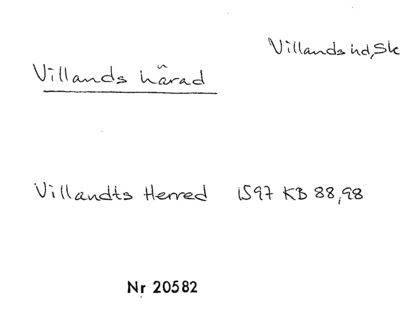 Villands hd, Sk
Villands härad
Villandts Herred 1597 KB 88, 98
Nr 20582